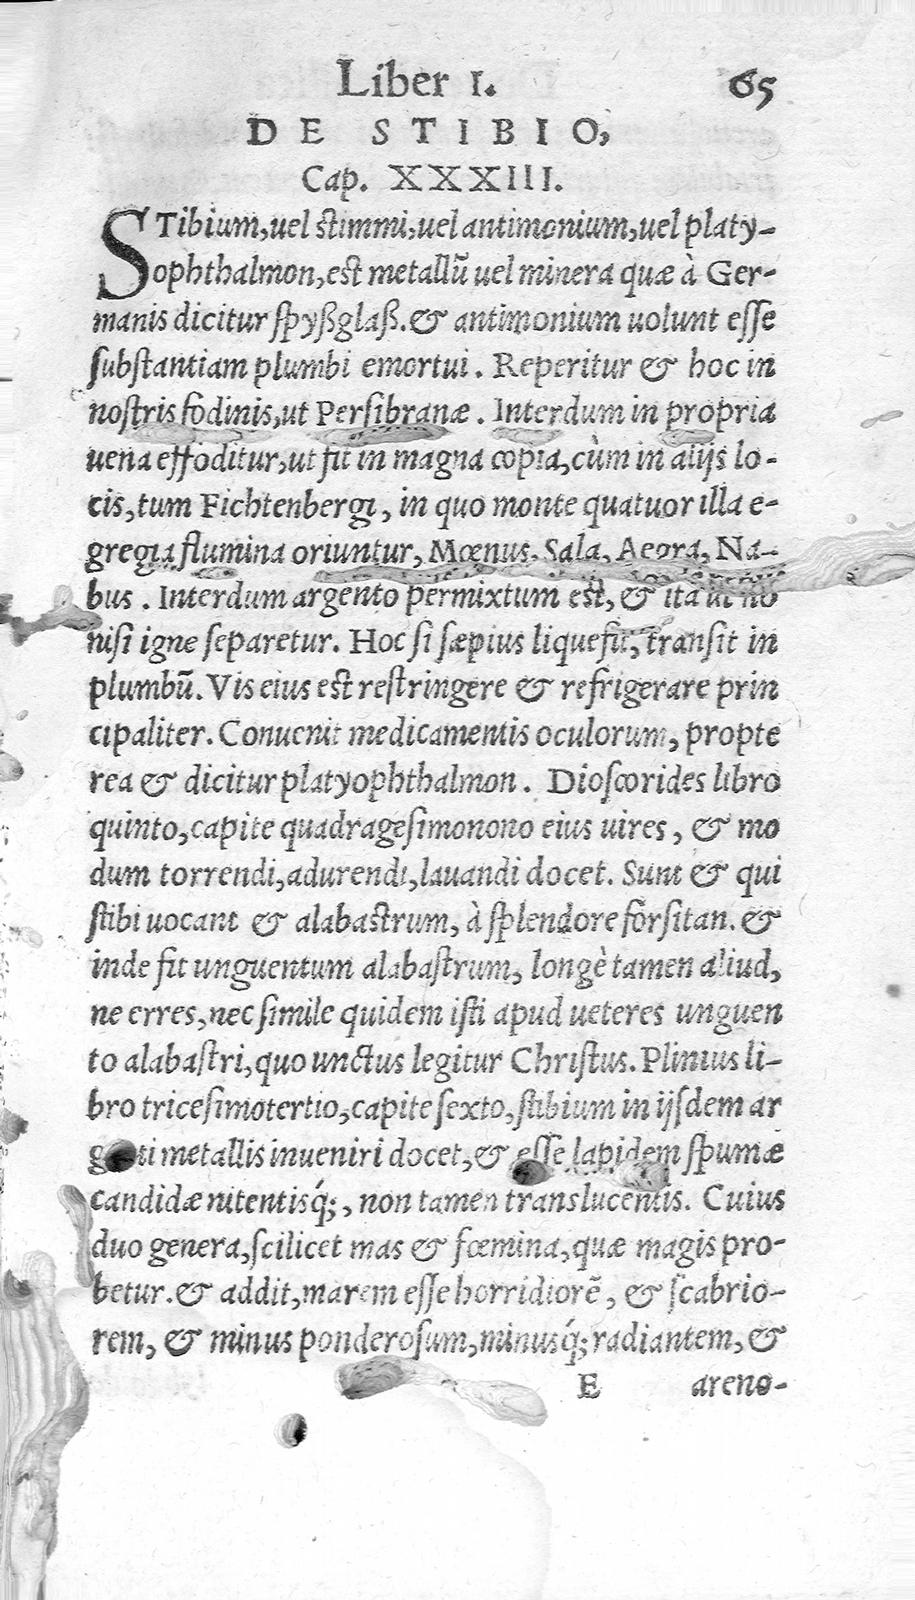 Liber I. 65
DE STIBIO,
Cap. XXXIII.
STibium, uel stimmi, uel antimonium, uel platy-
ophthalmon, est metallũ uel minera quæ à Ger-
manis dicitur spyßglaß. & antimonium uolunt esse
substantiam plumbi emortui. Reperitur & hoc in
nostris fodinis, ut Persibranæ. Interdum in propria
uena effoditur, ut fit in magna copia, cùm in alijs lo-
cis, tum Fichtenbergi, in quo monte quatuor illa e-
gregia flumina oriuntur, Mœnus, Sala, Aegra, Na-
bus. Interdum argento permixtum est, & ita ut no
nisi igne separetur. Hoc si sæpius liquefit, transit in
plumbũ. Vis eius est restringere & refrigerare prin
cipaliter. Conuenit medicamentis oculorum, propte
rea & dicitur platyophthalmon. Dioscorides libro
quinto, capite quadragesimonono eius uires, & mo
dum torrendi, adurendi, lauandi docet. Sunt & qui
stibi uocant & alabastrum, à splendore forsitan. &
inde fit unguentum alabastrum, longè tamen aliud,
ne erres, nec simile quidem isti apud ueteres unguen
to alabastri, quo unctus legitur Christus. Plinius li-
bro tricesimotertio, capite sexto, stibium in ijsdem ar
metallis inueniri docet, & esse lapidem spumæ
candidæ nitentisq́;, non tamen translucentis. Cuius
duo genera, scilicet mas & fœmina, quæ magis pro-
betur. & addit, marem esse horridiorẽ, & scabrio-
rem, & minus ponderosum, minusq́; radiantem, &
E areno-